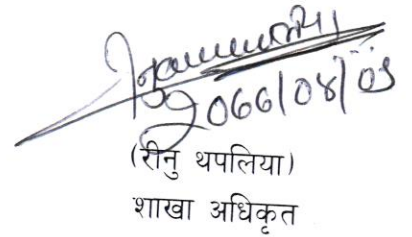 2066/04/05
(रीनु थपलिया)
शाखा अधिकृत